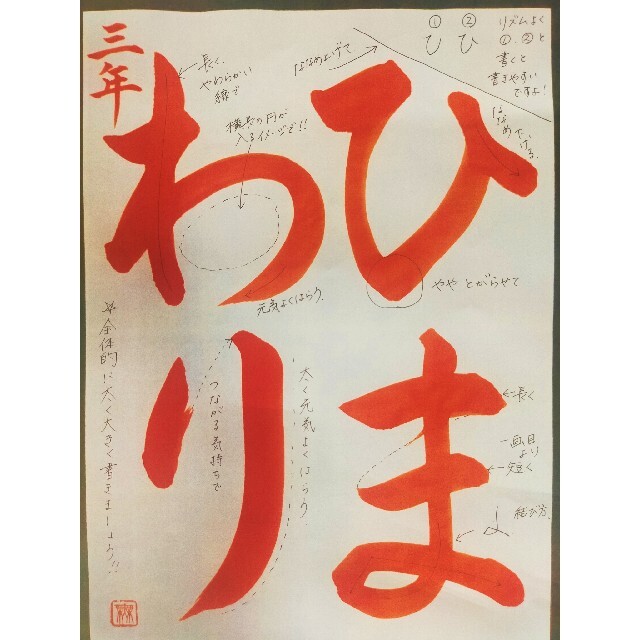 ひま
わり
三年
① ②
ひ ひ
リズムよく
①、②と
書くと
書きやすい
ですよ!
ななめ上げて
ななめに
やや とがらせて
長く
一画目
より
短く
結び方
長く、
やわらかい
線で
横長の円が
入るイメージで!!
元気よくはらう。
つながる気持ちで
太く元気よくはらう
※全体的に太く大きく書きましょう!!